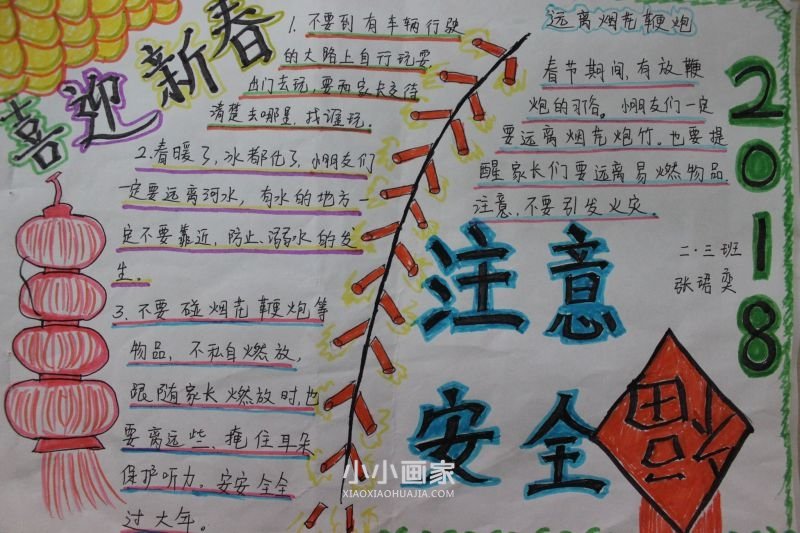 喜迎新春
1、不要到有车辆行驶
的大路上自行玩耍
出门去玩,要和家长交待
清楚去哪里,找谁玩。
2.春暖了,冰都化了,小朋友们
一定要远离河水,有水的地方一
定不要靠近,防止、溺水的发
生。
3、不要碰烟花鞭炮等
物品,不私自燃放,
跟随家长燃放时,也
要离远些、掩住耳朵
保护听力。安安全全
过大年。
远离烟花鞭炮
春节期间,有放鞭
炮的习俗。小朋友们一定
要远离烟花炮竹。也要提
醒家长们要远离易燃物品
注意、不要引发火灾。
2018
二·三班
张语奕
注意
安全
福
小小画家
XIAOXIAOHUAJIA.COM